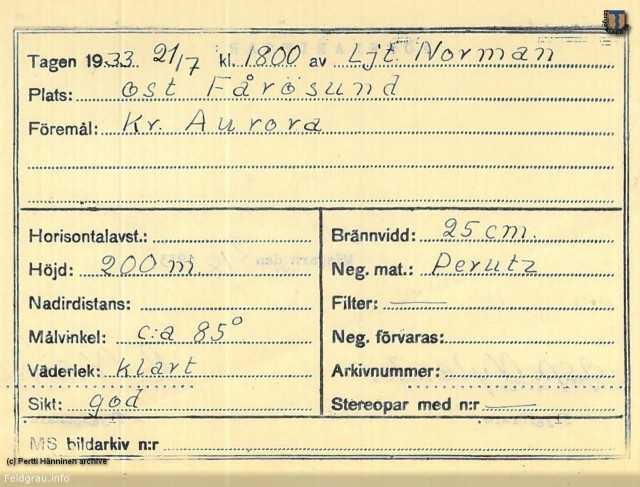 Tagen 1933 21/7 kl. 1800 av Ljt. Norman
Plats: ost Fårösund
Föremål: Kr. Aurora
Horisontalavst.:
Höjd: 200 m
Nadirdistans:
Målvinkel: c:a 85°
Väderlek: klart
Sikt: god
Brännvidd: 25 cm.
Neg. mat.: Perutz
Filter: —
Neg. förvaras:
Arkivnummer:
Stereopar med n:r —
MS bildarkiv n:r
(c) Pertti Hänninen archive
Feldgrau.info